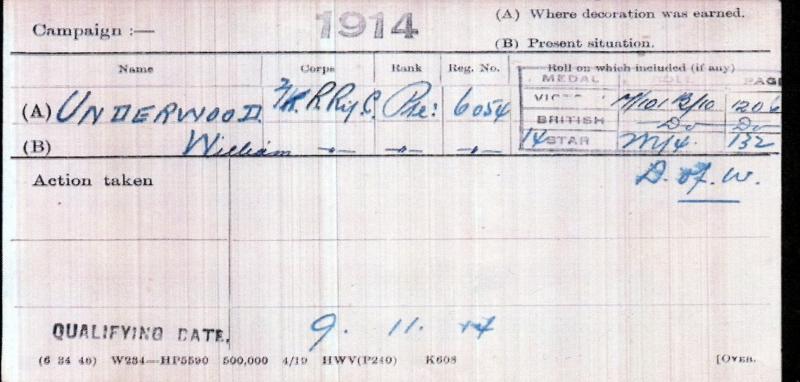 Campaign :— 1914 (A) Where decoration was earned.
(B) Present situation.
Name Corps Rank Reg. No. Roll on which included (if any)
MEDAL ROLL PAGE
(A) UNDERWOOD. K. R. Rif. C. Pte: 6054 VICTORY 1206
BRITISH Do Do
(B) William —„— —„— —„— 14 STAR 132
Action taken D. of. W.
QUALIFYING DATE, 9. 11. 14
(6 34 46) W234—HP5590 500,000 4/19 HWV(P240) K608 [OVER.